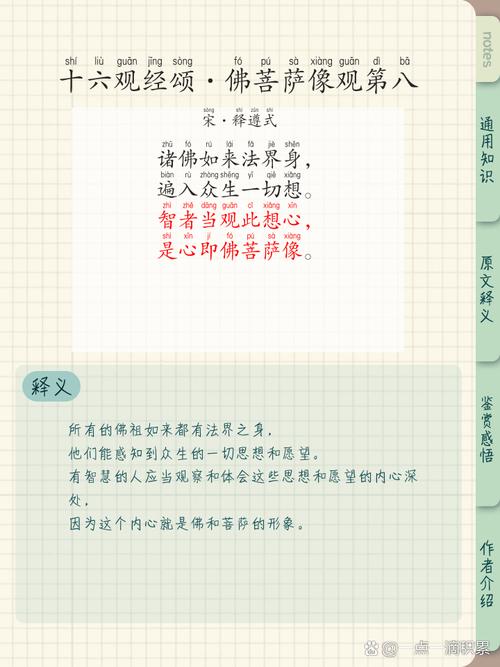 shí liù guān jīng sòng fó pú sà xiàng guān dì bā
十六观经颂·佛菩萨像观第八
sòng shì zūn shì
宋·释遵式
zhū fó rú lái fǎ jiè shēn
诸佛如来法界身，
biàn rù zhòng shēng yī qiē xiǎng
遍入众生一切想。
zhì zhě dāng guān cǐ xiǎng xīn
智者当观此想心，
shì xīn jí fó pú sà xiàng
是心即佛菩萨像。
释义
所有的佛祖如来都有法界之身，
他们能感知到众生的一切思想和愿望。
有智慧的人应当观察和体会这些思想和愿望的内心深
处，
因为这个内心就是佛和菩萨的形象。
notes
通用知识
原文释义
鉴赏感悟
作者介绍
@一点一滴积累